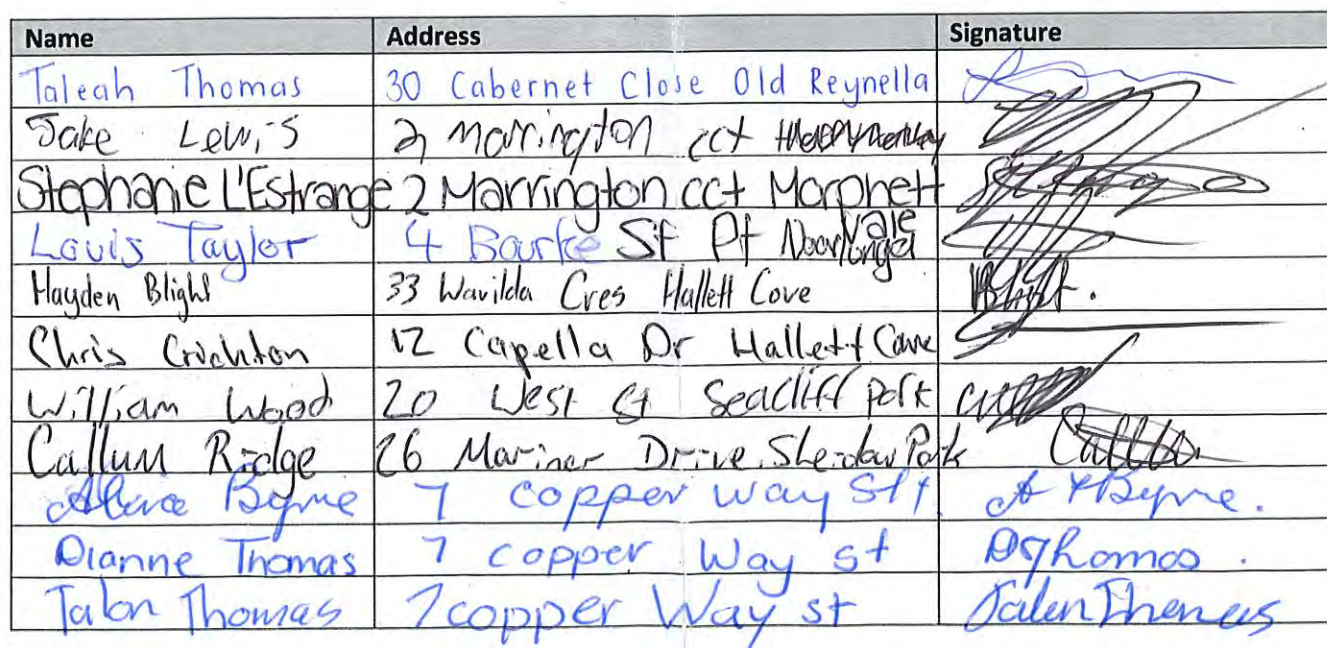 Name Address Signature
Taleah Thomas 30 Cabernet Close Old Reynella
Jake Lewis 2 Marrington cct
Stephanie L'Estrange 2 Marrington cct Morphett Vale
Louis Taylor 4 Bourke St Pt Noarlunga
Hayden Blight 33 Wavilda Cres Hallett Cove
Chris Crichton 12 Capella Dr Hallett Cove
William Wood 20 West St Seacliff Park
Callum Ridge 26 Mariner Drive Sheidow Park
Byrne 7 copper way st A Byrne.
Dianne Thomas 7 copper Way st D Thomas.
Talon Thomas 7 copper Way st Talon Thomas